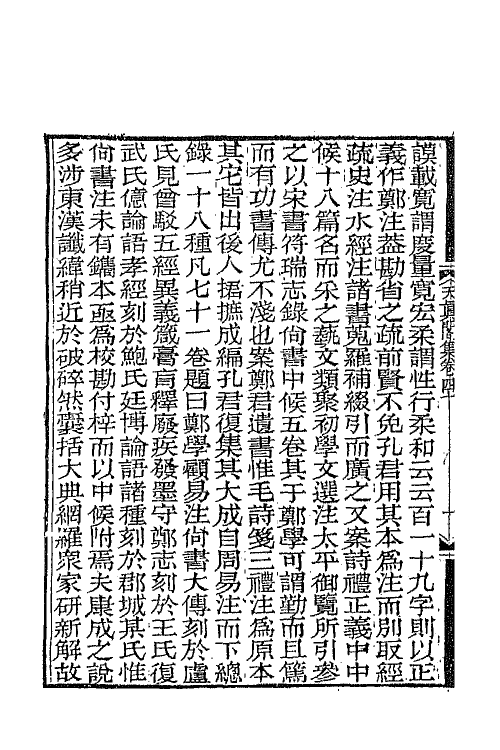 謨載寬謂度量寬宏柔謂性行柔和云云百一十九字則以正
義作鄭注葢勘省之疏前賢不免孔君用其本為注而別取經
疏史注水經注諸書蒐羅補綴引而廣之又案詩禮正義中中
候十八篇名而采之藝文類聚初學文選注太平御覽所引參
之以宋書符瑞志錄尙書中候五卷其于鄭學可謂勤而且篤
而有功書傳尤不淺也案鄭君遺書惟毛詩箋三禮注為原本
其它皆出後人捃摭成編孔君復集其大成自周易注而下總
錄一十八種凡七十一卷題曰鄭學顧易注尙書大傳刻於盧
氏見曾駁五經異義箴膏肓釋廢疾發墨守鄭志刻於王氏復
武氏億論語孝經刻於鮑氏廷博論語諸種刻於郡城某氏惟
尙書注未有鐫本亟為校勘付梓而以中候附焉夫康成之說
多涉東漢讖緯稍近於破碎然囊括大典網羅衆家研新解故
天眞閣集卷四十
十